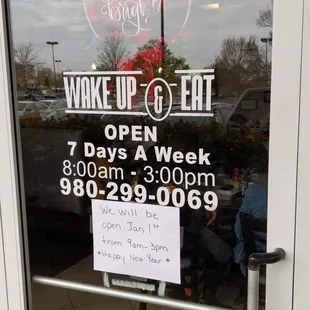 Bright
WAKE UP & EAT
OPEN
7 Days A Week
8:00am - 3:00pm
980-299-0069
We will be
open Jan 1st
from 9am-3pm
*Happy New Year*